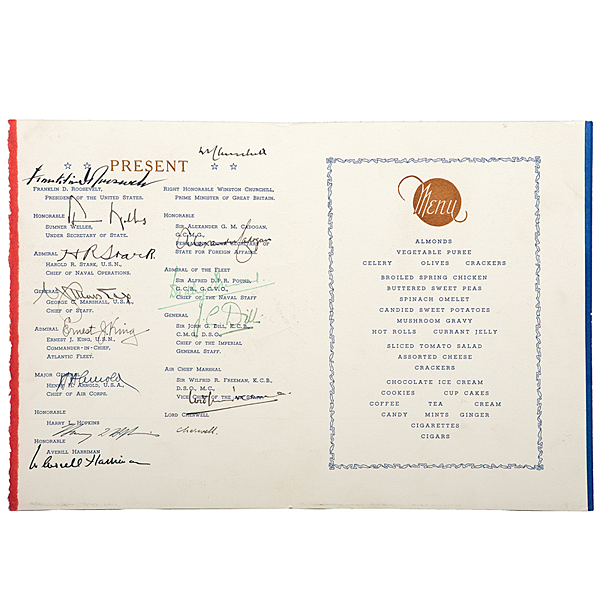 PRESENT
W Churchill
Franklin D Roosevelt
FRANKLIN D. ROOSEVELT,
PRESIDENT OF THE UNITED STATES.
HONORABLE
SUMNER WELLES,
UNDER SECRETARY OF STATE.
ADMIRAL
H R Stark.
HAROLD R. STARK, U.S.N.,
CHIEF OF NAVAL OPERATIONS.
GENERAL
GEORGE C. MARSHALL, U.S.A.
CHIEF OF STAFF.
ADMIRAL
Ernest J. King
ERNEST J. KING, U.S.N.,
COMMANDER-IN-CHIEF,
ATLANTIC FLEET.
MAJOR GENERAL
H H Arnold
HENRY H. ARNOLD, U.S.A.,
CHIEF OF AIR CORPS.
HONORABLE
HARRY L. HOPKINS
Harry L Hopkins
HONORABLE
AVERILL HARRIMAN
W Averell Harriman
RIGHT HONORABLE WINSTON CHURCHILL,
PRIME MINISTER OF GREAT BRITAIN.
HONORABLE
SIR ALEXANDER G. M. CADOGAN,
G.C.M.G.,
Alexander Cadogan
STATE FOR FOREIGN AFFAIRS.
ADMIRAL OF THE FLEET
SIR ALFRED D. P. R. POUND,
G.C.B., G.C.V.O.,
CHIEF OF THE NAVAL STAFF
GENERAL
J. G. Dill.
SIR JOHN G. DILL, K.C.B.,
C.M.G., D.S.O.,
CHIEF OF THE IMPERIAL
GENERAL STAFF.
AIR CHIEF MARSHAL
SIR WILFRID R. FREEMAN, K.C.B.,
D.S.O., M.C.,
VICE CHIEF OF THE AIR STAFF
LORD CHERWELL
Cherwell.
Menu
ALMONDS
VEGETABLE PUREE
CELERY OLIVES CRACKERS
BROILED SPRING CHICKEN
BUTTERED SWEET PEAS
SPINACH OMELET
CANDIED SWEET POTATOES
MUSHROOM GRAVY
HOT ROLLS CURRANT JELLY
SLICED TOMATO SALAD
ASSORTED CHEESE
CRACKERS
CHOCOLATE ICE CREAM
COOKIES CUP CAKES
COFFEE TEA CREAM
CANDY MINTS GINGER
CIGARETTES
CIGARS